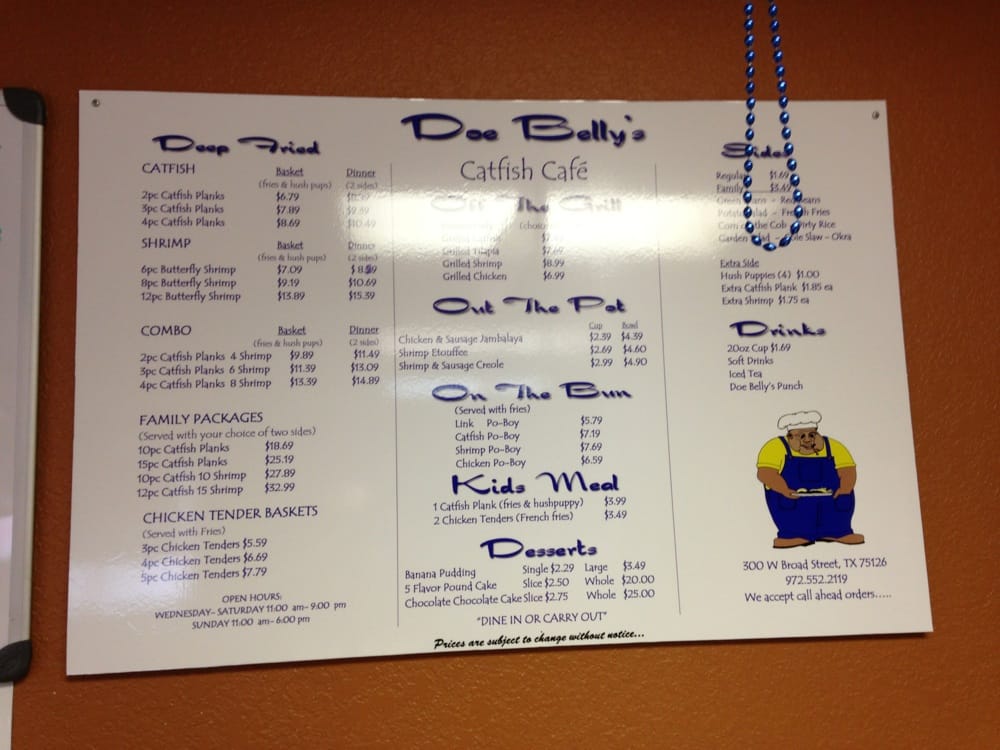 Doe Belly's
Catfish Café
Deep Fried
CATFISH Basket Dinner
(fries & hush pups) (2 sides)
2pc Catfish Planks $6.79
3pc Catfish Planks $7.89 $9.39
4pc Catfish Planks $8.69 $10.49
SHRIMP Basket Dinner
(fries & hush pups) (2 sides)
6pc Butterfly Shrimp $7.09
8pc Butterfly Shrimp $9.19 $10.69
12pc Butterfly Shrimp $13.89 $15.39
COMBO Basket Dinner
(fries & hush pups) (2 sides)
2pc Catfish Planks 4 Shrimp $9.89 $11.49
3pc Catfish Planks 6 Shrimp $11.39 $13.09
4pc Catfish Planks 8 Shrimp $13.39 $14.89
FAMILY PACKAGES
(Served with your choice of two sides)
10pc Catfish Planks $18.69
15pc Catfish Planks $25.19
10pc Catfish 10 Shrimp $27.89
12pc Catfish 15 Shrimp $32.99
CHICKEN TENDER BASKETS
(Served with Fries)
3pc Chicken Tenders $5.59
4pc Chicken Tenders $6.69
5pc Chicken Tenders $7.79
OPEN HOURS:
WEDNESDAY- SATURDAY 11:00 am- 9:00 pm
SUNDAY 11:00 am- 6:00 pm
Off The Grill
Grilled Tilapia $7.69
Grilled Shrimp $8.99
Grilled Chicken $6.99
Out The Pot
Cup Bowl
Chicken & Sausage Jambalaya $2.39 $4.39
Shrimp Etouffee $2.69 $4.60
Shrimp & Sausage Creole $2.99 $4.90
On The Bun
(Served with fries)
Link Po-Boy $5.79
Catfish Po-Boy $7.19
Shrimp Po-Boy $7.69
Chicken Po-Boy $6.59
Kids Meal
1 Catfish Plank (fries & hushpuppy) $3.99
2 Chicken Tenders (French fries) $3.49
Desserts
Banana Pudding Single $2.29 Large $3.49
5 Flavor Pound Cake Slice $2.50 Whole $20.00
Chocolate Chocolate Cake Slice $2.75 Whole $25.00
"DINE IN OR CARRY OUT"
Prices are subject to change without notice...
Sides
Regular $1.69
Family $3.49
Green Beans - Red Beans
Potato Salad - French Fries
Corn on the Cob - Dirty Rice
Garden Salad - Cole Slaw - Okra
Extra Side
Hush Puppies (4) $1.00
Extra Catfish Plank $1.85 ea
Extra Shrimp $1.75 ea
Drinks
20oz Cup $1.69
Soft Drinks
Iced Tea
Doe Belly's Punch
300 W Broad Street, TX 75126
972.552.2119
We accept call ahead orders.....